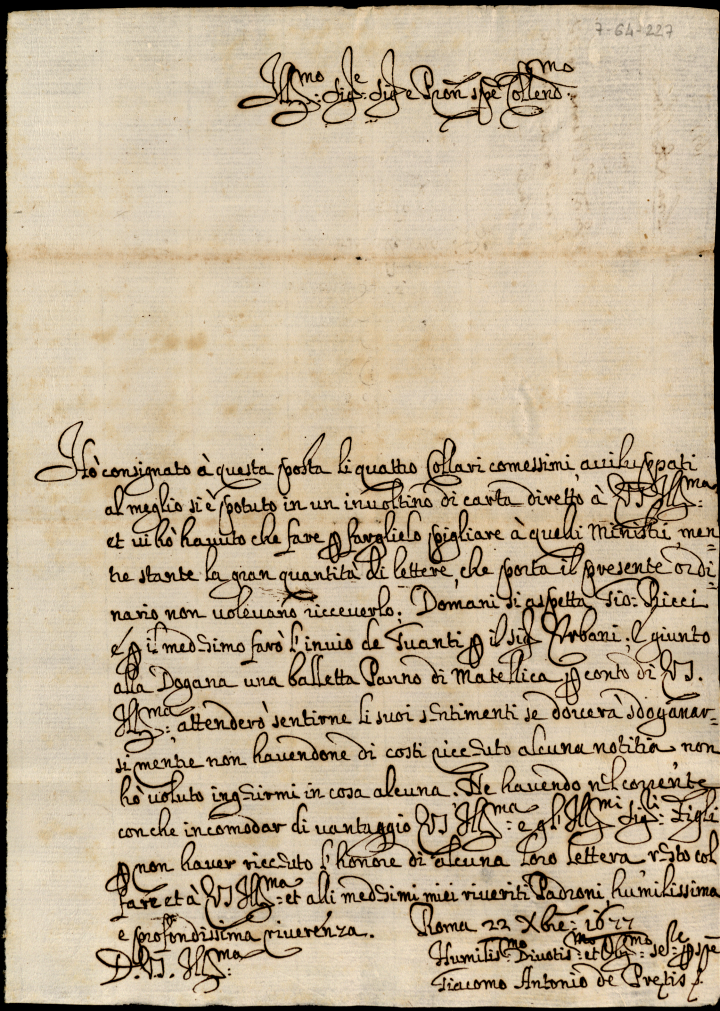 7-64-227
Ill.mo Sig.re Sig.re e Pron spe Colleno.mo
Hò consignato à questa posta li quattro Collari comessimi, auiluppati
al meglio si è potuto in un inuoltino di carta diretto à VS Ill.ma
et ui hò hauuto che fare p farglielo pigliare à quelli Ministri, men
tre stante la gran quantità di lettere, che porta il presente ordi-
nario non uoleuano riceuerlo. Domani si aspetta Gio: Ricci
e p il med.simo farò l'inuio de Guanti p il Sig.r Urbani; È giunto
alla Dogana una balletta Panno di Matellica p conto di VS.
Ill.ma: attenderò sentirne li suoi sentimenti se douerà sdoganar=
si mentre non hauendone di costi riceuuto alcuna notitia non
hò voluto ingerirmi in cosa alcuna. Ne hauendo nel corrente
con che incomodar di vantaggio VS Ill.ma: e gl'Ill.mi Sig.li: Figli
p non hauer riceuuto l'honore di alcuna loro lettera resto col
fare et à VS Ill.ma: et alli medesimi miei riueriti Padroni humilissima
e profondissima riuerenza. Roma 22 Xbre: 1677
D. VS. Ill.ma: Humilis.mo Diuotis.mo: et Obl.mo: se.re p spe
Giacomo Antonio de Pretis